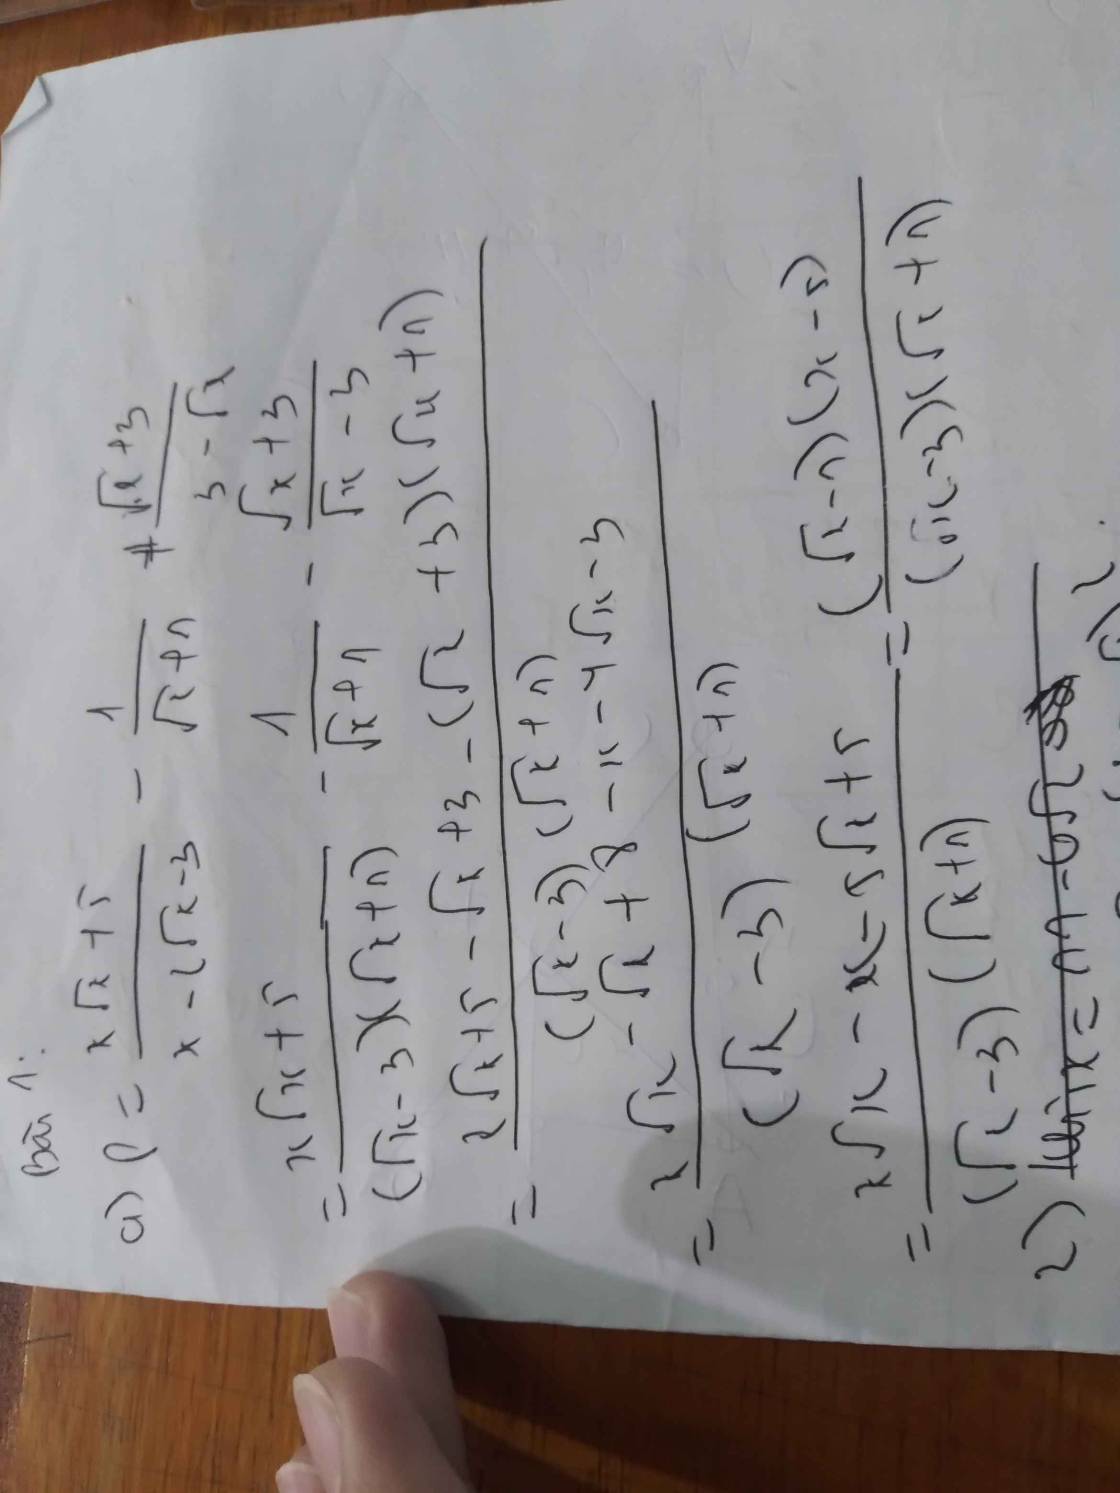 Bài 1:
a) P = (x√x + 5)/(x - 2√x - 3) - 1/(√x + 1) + (√x + 3)/(3 - √x)
= (x√x + 5)/((√x - 3)(√x + 1)) - 1/(√x + 1) - (√x + 3)/(√x - 3)
= (x√x + 5 - √x + 3 - (√x + 3)(√x + 1))/((√x - 3)(√x + 1))
= (x√x - √x + 8 - x - 4√x - 3)/((√x - 3)(√x + 1))
= (x√x - x - 5√x + 5)/((√x - 3)(√x + 1)) = ((√x - 1)(x - 5))/((√x - 3)(√x + 1))
2)